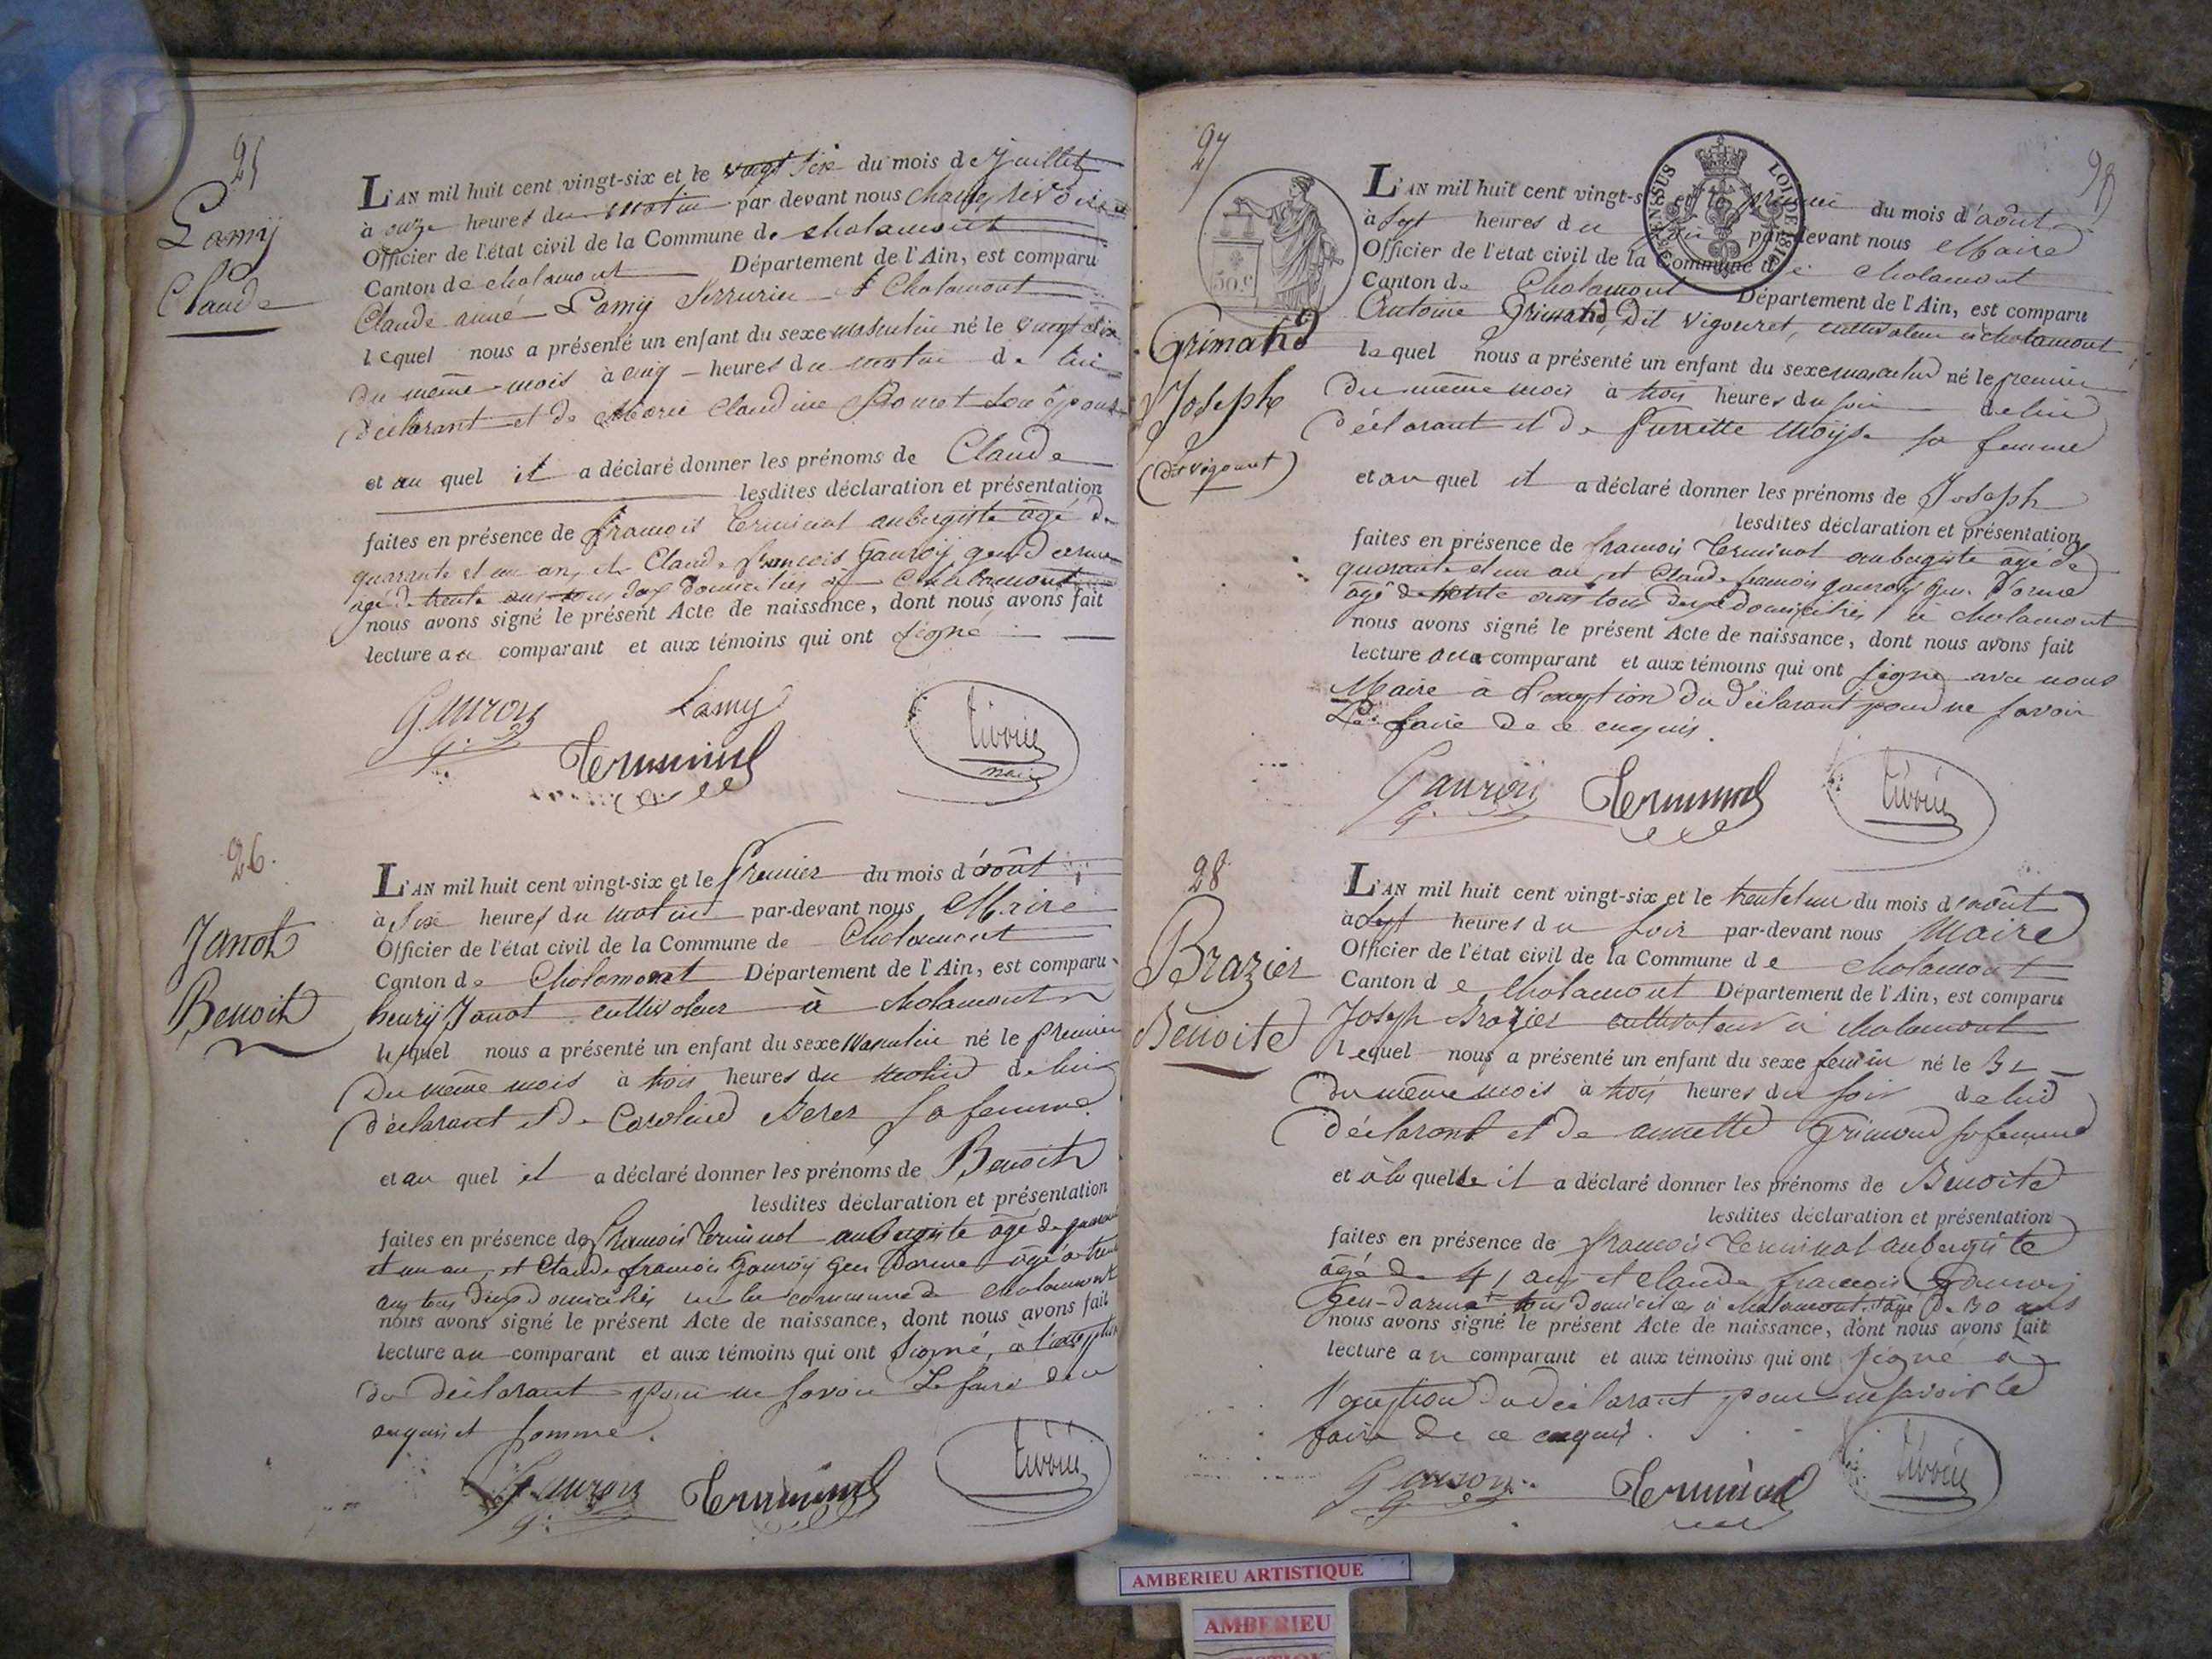 25
Lamy
Claude
L'AN mil huit cent vingt-six et le vingt six du mois de Juillet
à onze heures du matin par devant nous
Officier de l'état civil de la Commune de Chalamont
Canton de Chalamont Département de l'Ain, est comparu
Claude aimé Lamy Serrurier à Chalamont
lequel nous a présenté un enfant du sexe masculin né le vingt six
du même mois à cinq heures du matin de lui
déclarant et de Marie Claudine son épouse
et au quel il a déclaré donner les prénoms de Claude
lesdites déclaration et présentation
faites en présence de françois Terminal aubergiste âgé de
quarante et un ans, et Claude françois Gauroy gendarme
âgé de trente ans tous deux domiciliés à Chalamont
nous avons signé le présent Acte de naissance, dont nous avons fait
lecture au comparant et aux témoins qui ont signé
Gauroy Lamy
Terminal
tivoire
maire
26.
Janot
Benoit
L'AN mil huit cent vingt-six et le premier du mois d'août
à six heures du matin par-devant nous Maire
Officier de l'état civil de la Commune de Chalamont
Canton de Chalamont Département de l'Ain, est comparu
henrÿ Janot cultivateur à chalamont
lequel nous a présenté un enfant du sexe masculin né le premier
du même mois à trois heures du matin de lui
déclarant et de Caroline sa femme
et au quel il a déclaré donner les prénoms de Benoit
lesdites déclaration et présentation
faites en présence de françois Terminal aubergiste âgé de quarante
et un an, et Claude françois Gauroÿ gen darme âgé de trente
ans tous deux domiciliés en la commune de chalamont
nous avons signé le présent Acte de naissance, dont nous avons fait
lecture au comparant et aux témoins qui ont signé, à l'exception
du déclarant pour ne savoir le faire de ce
enquis et sommé.
Gauroy Terminal tivoire
27
98
50.c
REGENSUS LOI DE 1816
Grimand
Joseph
(dit vigouret)
L'AN mil huit cent vingt-six et le premier du mois d'août
à sept heures du soir par devant nous Maire
Officier de l'état civil de la Commune de chalamont
Canton de Chalamont Département de l'Ain, est comparu
Antoine Grimand, dit vigouret, cultivateur à chalamont
lequel nous a présenté un enfant du sexe masculin né le premier
du même mois à trois heures du soir de lui
déclarant et de Pierrette moÿse sa femme
et au quel il a déclaré donner les prénoms de Joseph
lesdites déclaration et présentation
faites en présence de françois Terminal aubergiste âgé de
quarante et un an, et Claude françois gauroÿ gen darme
âgé de trente ans tous deux domiciliés à chalamont
nous avons signé le présent Acte de naissance, dont nous avons fait
lecture au comparant et aux témoins qui ont signé avec nous
Maire à l'exception du déclarant pour ne savoir
Le faire de ce enquis.
Gauroÿ Terminal tivoire
28
Brazier
Benoite
L'AN mil huit cent vingt-six et le trente et un du mois d'août
à sept heures du soir par-devant nous Maire
Officier de l'état civil de la Commune de chalamont
Canton de Chalamont Département de l'Ain, est comparu
Joseph Brazier cultivateur à chalamont
lequel nous a présenté un enfant du sexe feminin né le 31
du même mois à trois heures du soir de lui
déclarant et de annette Grimand sa femme
et à la quelle il a déclaré donner les prénoms de Benoite
lesdites déclaration et présentation
faites en présence de françois Terminal aubergiste
âgé de 41 ans et claude françois Gauroy
gen-darme tous domiciliés à chalamont âgé de 30 ans
nous avons signé le présent Acte de naissance, dont nous avons fait
lecture au comparant et aux témoins qui ont signé à
l'exception du déclarant pour ne savoir le
faire de ce enquis.
Gauroy Terminal tivoire
AMBERIEU ARTISTIQUE
AMBERIEU